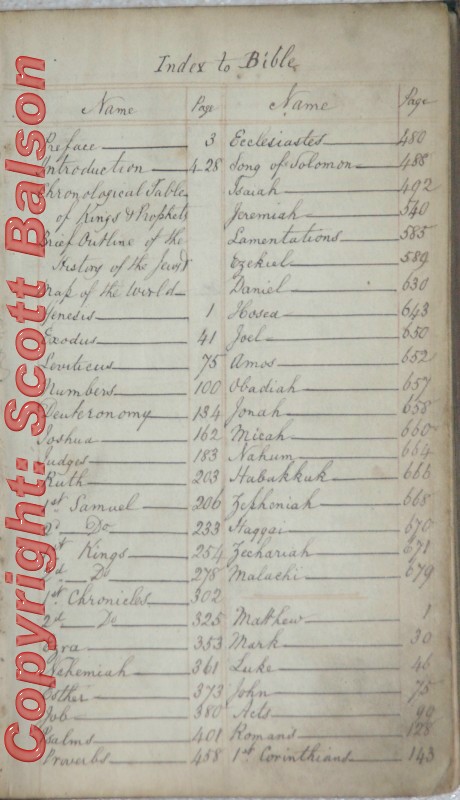 Index to Bible
Name Page
Preface 3
Introduction 4-28
Chronological Table
of Kings & Prophets
Brief Outline of the
History of the Jews
Map of the World
Genesis 1
Exodus 41
Leviticus 75
Numbers 100
Deuteronomy 134
Joshua 162
Judges 183
Ruth 203
1st Samuel 206
2d Do 233
1st Kings 254
2d Do 278
1st Chronicles 302
2d Do 325
Ezra 353
Nehemiah 361
Esther 373
Job 380
Psalms 401
Proverbs 458
Name Page
Ecclesiastes 480
Song of Solomon 488
Isaiah 492
Jeremiah 540
Lamentations 585
Ezekiel 589
Daniel 630
Hosea 643
Joel 650
Amos 652
Obadiah 657
Jonah 658
Micah 660
Nahum 664
Habakkuk 666
Zephoniah 668
Haggai 670
Zechariah 671
Malachi 679
Matthew 1
Mark 30
Luke 46
John 75
Acts 99
Romans 128
1st Corinthians 143
Copyright: Scott Balson